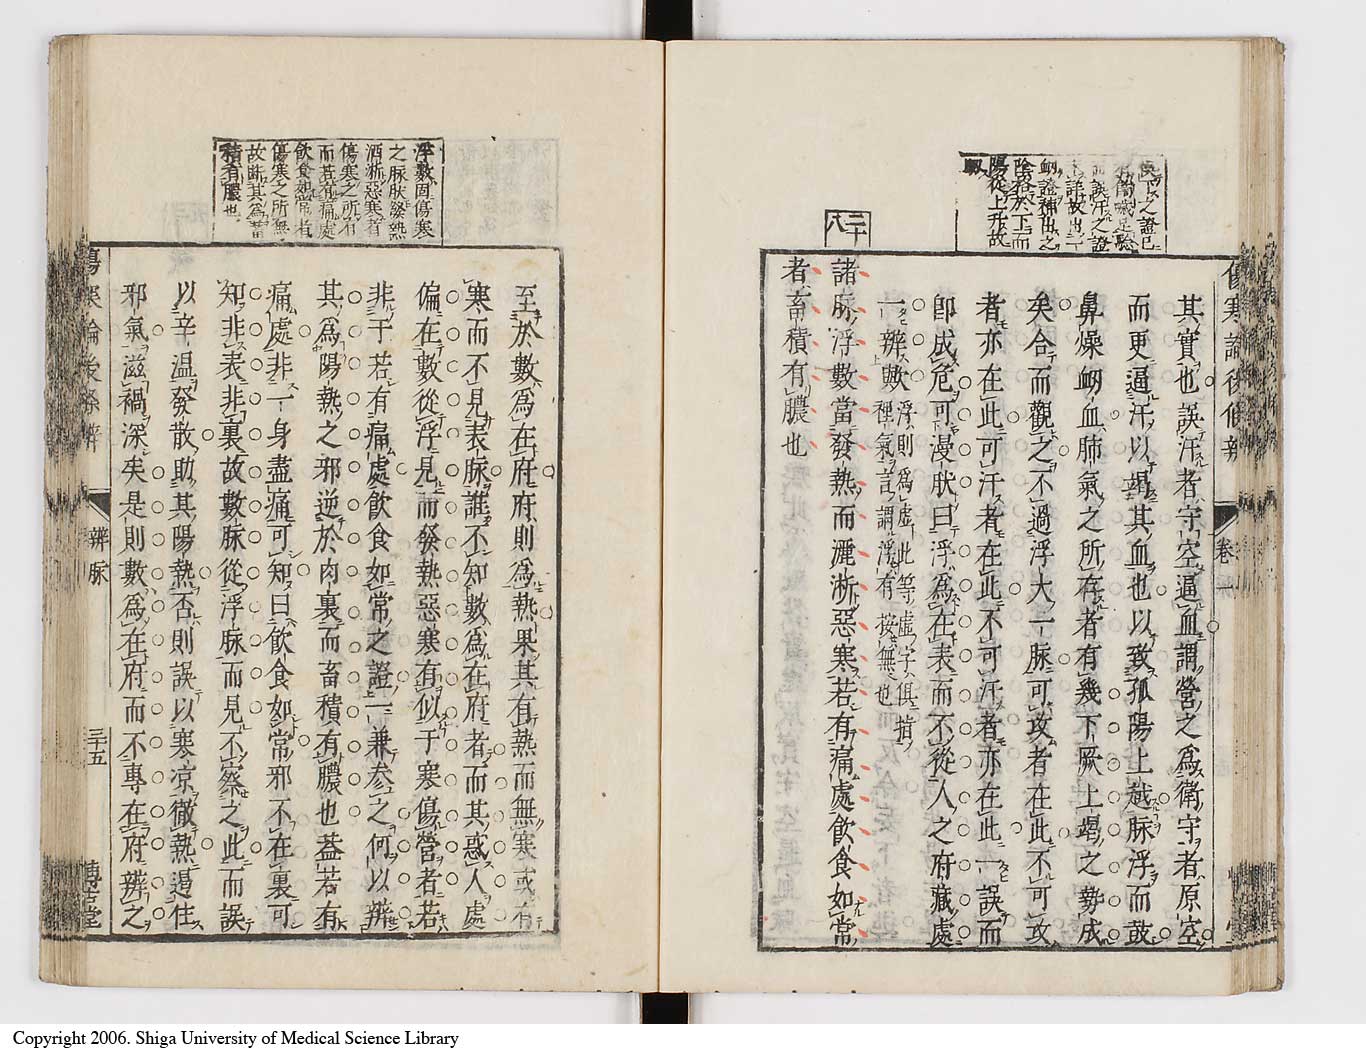 其實也誤汗者守空逼血謂營之爲衛守者原空
而更逼汗以竭其血也以致孤陽上越脉浮而鼓
鼻燥衂血肺氣之所存者有幾下厥上竭之勢成
矣合而觀之不過浮大一脉可攻者在此不可攻
者亦在此可汗者在此不可汗者亦在此一誤而
即成危可漫肰曰浮爲在表而不從人之府藏處
一辨歟
浮則爲虛此等虛字俱指
裡氣言謂浮有按無也
二十八
諸脉浮數當發熱而灑淅惡寒若有痛處飲食如常
者畜積有膿也
傷寒論後條辨
卷
浮數固傷寒
之脉肰發熱
洒淅惡寒者
傷寒之所有
而若有痛處
飲食如常者
傷寒之所無
故斷其爲畜
積有膿也
至於數爲在府府則爲熱果其有熱而無寒或有
寒而不見表脉誰不知數爲在府者而其惑人處
偏在數從浮見而發熱惡寒有似于寒傷營者若
非于若有痛處飲食如常之證一兼參之何以辨
其爲陽熱之邪逆於肉裏而畜積有膿也葢若有
痛處非一身盡痛可知曰飲食如常邪不在裏可
知非表非裏故數脉從浮脉而見不察之此而誤
以辛温發散助其陽熱否則誤以寒凉徹熱遏住
邪氣滋禍深矣是則數爲在府而不專在府辨之
傷寒論後條辨
辨脉
三十五
博古堂
Copyright 2006. Shiga University of Medical Science Library